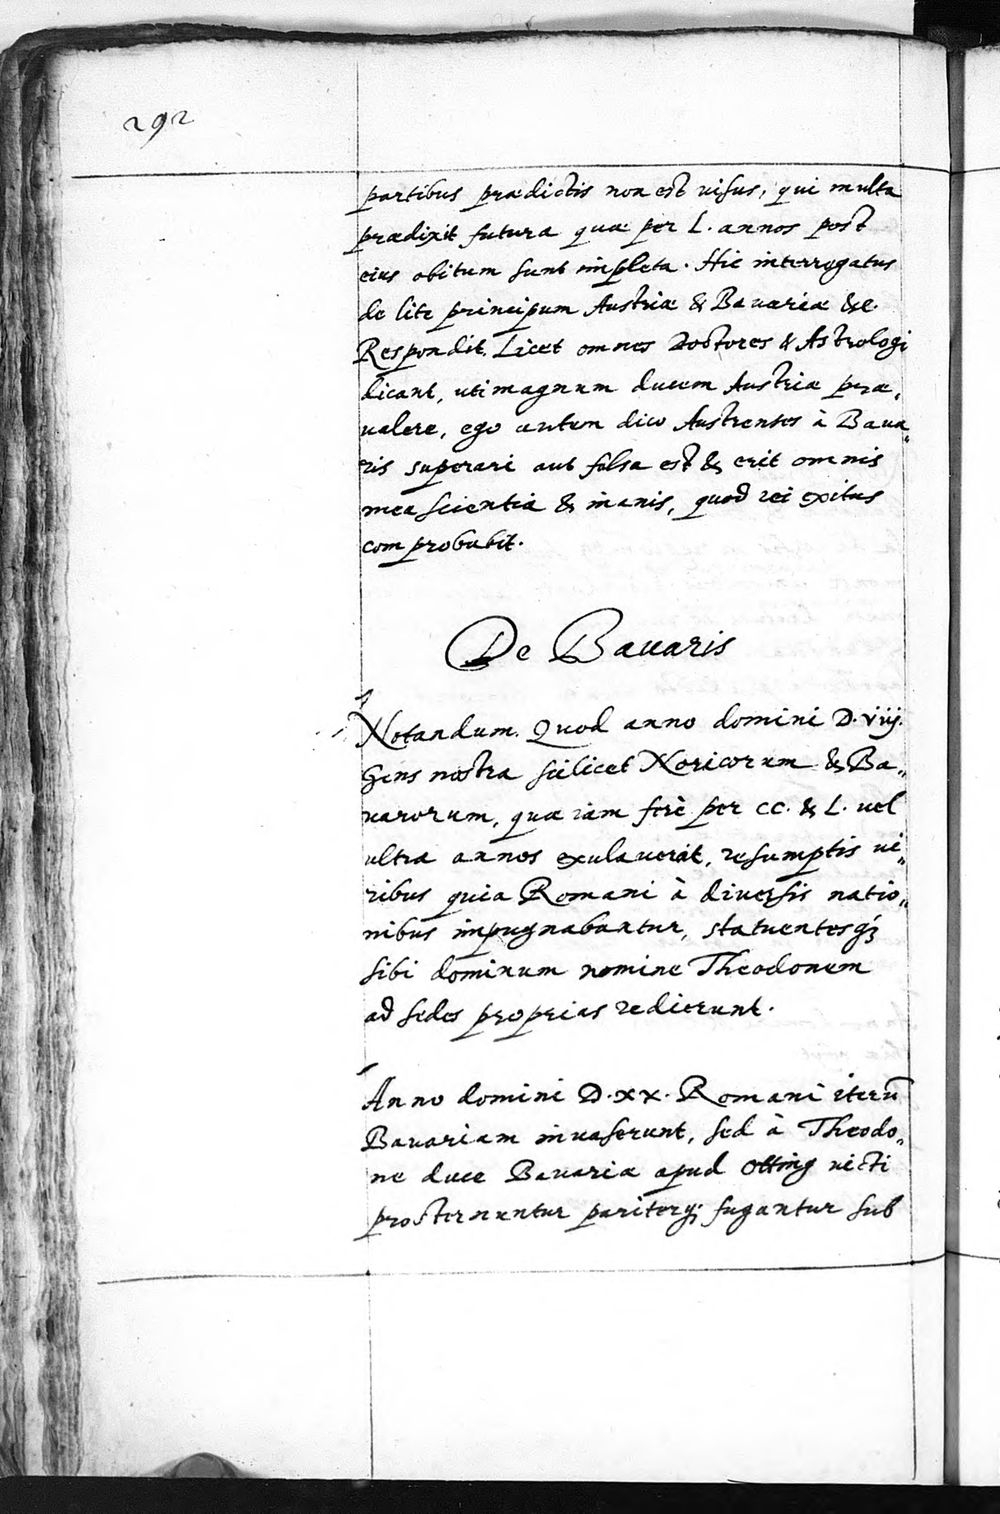 292
partibus prædictis non est uisus, qui multa
prædixit futura quæ per L. annos post
eius obitum sunt impleta. Hic interrogatus
de lite principum Austriæ & Bauariæ &c.
Respondit. Licet omnes Doctores & Astrologi
dicant, uti magnum ducem Austriæ præ„
ualere, ego autem dico Austrenses à Baua„
ris superari aut falsa est & erit omnis
mea scientia & inanis, quod rei exitus
comprobabit.
De Bauaris
Notandum. Quod anno domini D. viij.
Gens nostra scilicet Noricorum & Ba„
uarorum, quæ iam ferè per CC. & L. uel
ultra annos exulauerat, resumptis ui„
ribus quia Romani à diuersis natio„
nibus impugnabantur, statuentesq́;
sibi dominum nomine Theodonem
ad sedes proprias redierunt.
Anno domini D.xx. Romani iterū
Bauariam inuaserunt, sed à Theodo„
ne duce Bauariæ apud Otting uicti
prosternuntur pariterq; fugantur sub